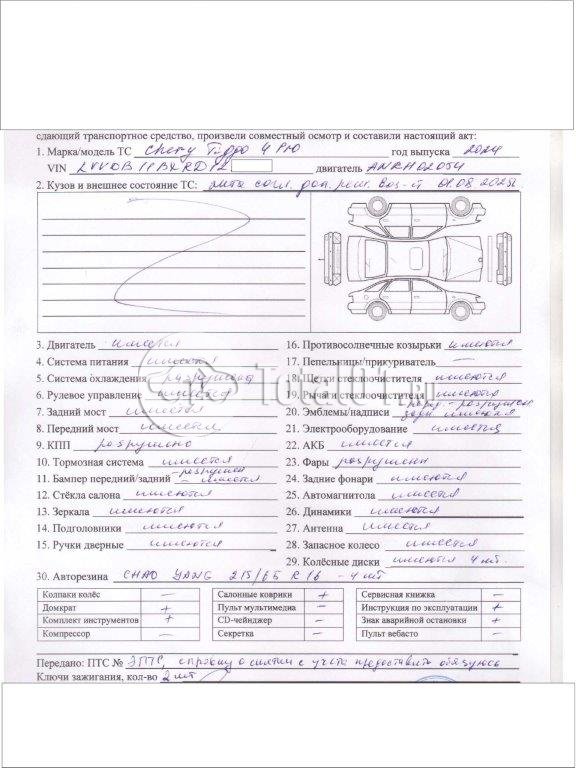 сдающий транспортное средство, произвели совместный осмотр и составили настоящий акт:
1. Марка/модель ТС Chery Tiggo 4 Pro год выпуска 2024
VIN LVVDB11BXRD12 двигатель ANRH02054
2. Кузов и внешнее состояние ТС: 01.08.2025г.
3. Двигатель имеется
4. Система питания имеется
5. Система охлаждения разрушена
6. Рулевое управление имеется
7. Задний мост имеется
8. Передний мост имеется
9. КПП разрушено
10. Тормозная система имеется
11. Бампер передний/задний - разрушен - имеется
12. Стёкла салона имеются
13. Зеркала имеются
14. Подголовники имеются
15. Ручки дверные имеются
16. Противосолнечные козырьки имеются
17. Пепельницы/прикуриватель —
18. Щетки стеклоочистителя имеются
19. Рычаги стеклоочистителя имеются
20. Эмблемы/надписи перед - разрушен. задн. имеются
21. Электрооборудование имеется
22. АКБ имеется
23. Фары разрушены
24. Задние фонари имеются
25. Автомагнитола имеется
26. Динамики имеются
27. Антенна имеется
28. Запасное колесо имеется
29. Колёсные диски имеются 4 шт.
30. Авторезина CHAO YANG 215/65 R16 - 4 шт
Колпаки колёс — Салонные коврики + Сервисная книжка —
Домкрат + Пульт мультимедиа — Инструкция по эксплуатации +
Комплект инструментов + CD-чейнджер — Знак аварийной остановки +
Компрессор — Секретка — Пульт вебасто —
Передано: ПТС № ЭПТС, справку о снятии с учета предоставить обязуюсь
Ключи зажигания, кол-во 2 шт
Total01.ru